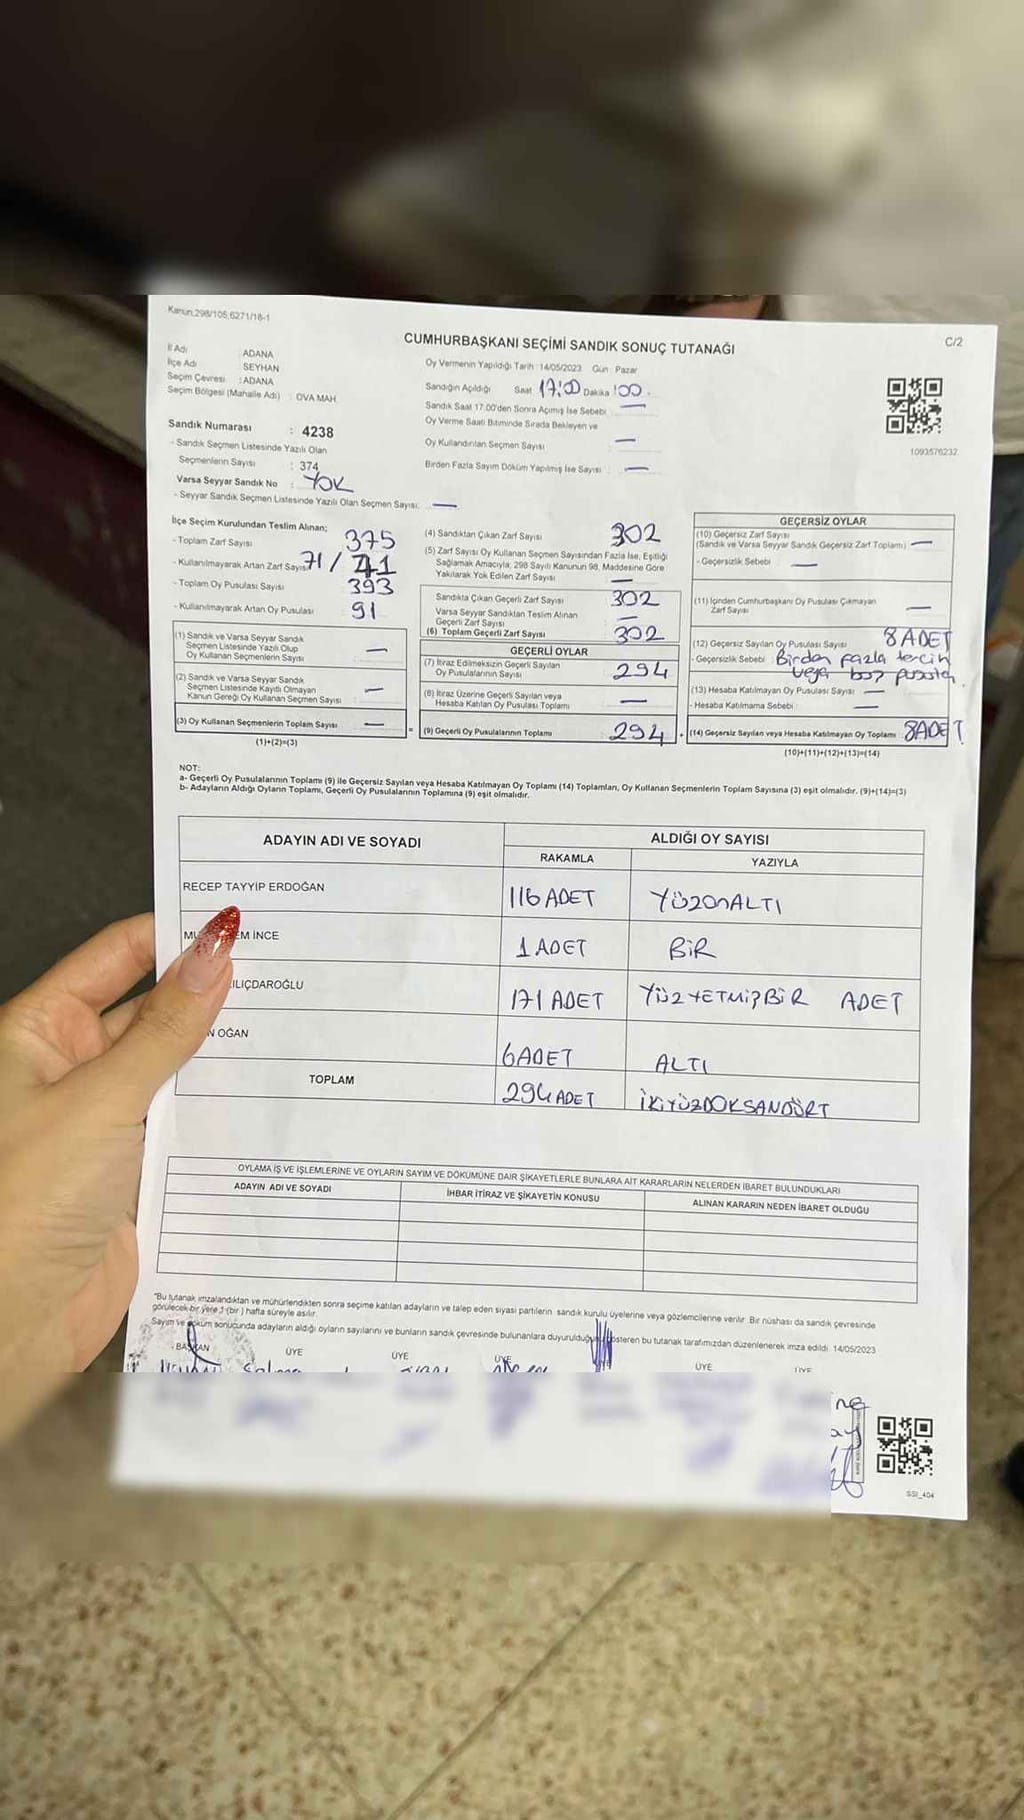 Kanun,298/105,6271/18-1
CUMHURBAŞKANI SEÇİMİ SANDIK SONUÇ TUTANAĞI
C/2
İl Adı : ADANA
İlçe Adı : SEYHAN
Seçim Çevresi : ADANA
Seçim Bölgesi (Mahalle Adı) : OVA MAH
Sandık Numarası : 4238
- Sandık Seçmen Listesinde Yazılı Olan
Seçmenlerin Sayısı : 374
Varsa Seyyar Sandık No : YOK
- Seyyar Sandık Seçmen Listesinde Yazılı Olan Seçmen Sayısı: —
Oy Vermenin Yapıldığı Tarih :14/05/2023 Gün : Pazar
Sandığın Açıldığı Saat 17:00 Dakika :00.
Sandık Saat 17.00'den Sonra Açımış İse Sebebi : —
Oy Verme Saati Bitiminde Sırada Bekleyen ve
Oy Kullandırılan Seçmen Sayısı : —
Birden Fazla Sayım Döküm Yapılmış İse Sayısı : —
1093576232
İlçe Seçim Kurulundan Teslim Alınan;
- Toplam Zarf Sayısı : 375
- Kullanılmayarak Artan Zarf Sayısı 71 / 71
- Toplam Oy Pusulası Sayısı : 393
- Kullanılmayarak Artan Oy Pusulası : 91
(1) Sandık ve Varsa Seyyar Sandık
Seçmen Listesinde Yazılı Olup
Oy Kullanan Seçmenlerin Sayısı : —
(2) Sandık ve Varsa Seyyar Sandık
Seçmen Listesinde Kayıtlı Olmayan
Kanun Gereği Oy Kullanan Seçmen Sayısı : —
(3) Oy Kullanan Seçmenlerin Toplam Sayısı : —
(1)+(2)=(3)
(4) Sandıktan Çıkan Zarf Sayısı : 302
(5) Zarf Sayısı Oy Kullanan Seçmen Sayısından Fazla İse, Eşitliği
Sağlamak Amacıyla, 298 Sayılı Kanunun 98. Maddesine Göre
Yakılarak Yok Edilen Zarf Sayısı : —
Sandıkta Çıkan Geçerli Zarf Sayısı : 302
Varsa Seyyar Sandıktan Teslim Alınan
Geçerli Zarf Sayısı : —
(6) Toplam Geçerli Zarf Sayısı : 302
GEÇERLİ OYLAR
(7) İtiraz Edilmeksizin Geçerli Sayılan
Oy Pusulalarının Sayısı : 294
(8) İtiraz Üzerine Geçerli Sayılan veya
Hesaba Katılan Oy Pusulası Toplamı : —
(9) Geçerli Oy Pusulalarının Toplamı : 294
GEÇERSİZ OYLAR
(10) Geçersiz Zarf Sayısı
(Sandık ve Varsa Seyyar Sandık Geçersiz Zarf Toplamı) : —
- Geçersizlik Sebebi : —
(11) İçinden Cumhurbaşkanı Oy Pusulası Çıkmayan
Zarf Sayısı : —
(12) Geçersiz Sayılan Oy Pusulası Sayısı : 8 ADET
- Geçersizlik Sebebi : Birden fazla tercih
veya boş pusula.
(13) Hesaba Katılmayan Oy Pusulası Sayısı : —
- Hesaba Katılmama Sebebi : —
(14) Geçersiz Sayılan veya Hesaba Katılmayan Oy Toplamı : 8ADET
(10)+(11)+(12)+(13)=(14)
NOT:
a- Geçerli Oy Pusulalarının Toplamı (9) ile Geçersiz Sayılan veya Hesaba Katılmayan Oy Toplamı (14) Toplamları, Oy Kullanan Seçmenlerin Toplam Sayısına (3) eşit olmalıdır. (9)+(14)=(3)
b- Adayların Aldığı Oyların Toplamı, Geçerli Oy Pusulalarının Toplamına (9) eşit olmalıdır.
ADAYIN ADI VE SOYADI ALDIĞI OY SAYISI
RAKAMLA YAZIYLA
RECEP TAYYİP ERDOĞAN 116 ADET YÜZONALTI
MU EM İNCE 1 ADET BİR
ILIÇDAROĞLU 171 ADET YÜZYETMİŞBİR ADET
N OĞAN 6ADET ALTI
TOPLAM 294 ADET İKİYÜZDOKSANDÖRT
OYLAMA İŞ VE İŞLEMLERİNE VE OYLARIN SAYIM VE DÖKÜMÜNE DAİR ŞİKAYETLERLE BUNLARA AİT KARARLARIN NELERDEN İBARET BULUNDUKLARI
ADAYIN ADI VE SOYADI İHBAR İTİRAZ VE ŞİKAYETİN KONUSU ALINAN KARARIN NEDEN İBARET OLDUĞU
"Bu tutanak imzalandıktan ve mühürlendikten sonra seçime katılan adayların ve talep eden siyasi partilerin sandık kurulu üyelerine veya gözlemcilerine verilir. Bir nüshası da sandık çevresinde
görülecek bir yere 1 (bir) hafta süreyle asılır.
Sayım ve döküm sonucunda adayların aldığı oyların sayılarını ve bunların sandık çevresinde bulunanlara duyurulduğunu gösteren bu tutanak tarafımızdan düzenlenerek imza edildi. 14/05/2023
BAŞKAN ÜYE ÜYE ÜYE ÜYE ÜYE
SSI_404